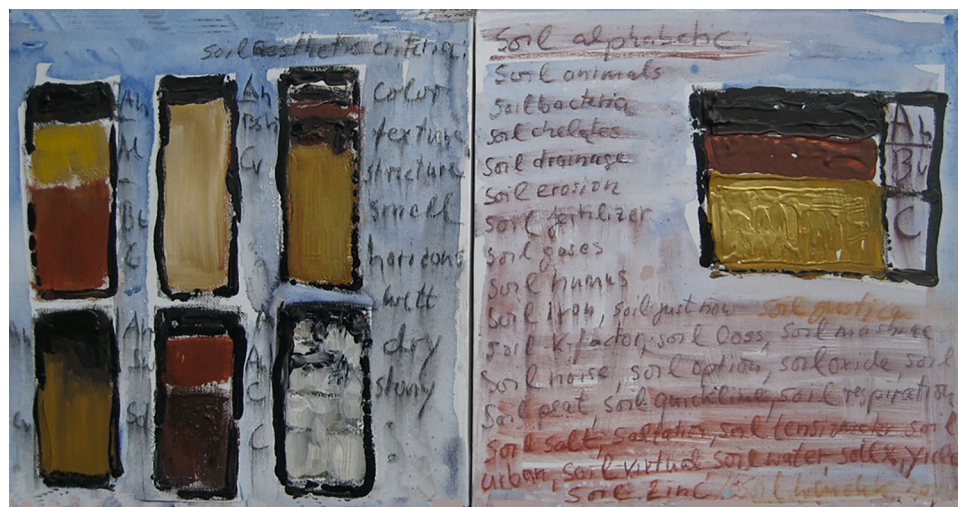 soil aesthetic criteria:
Ah
Al
Bt
C
Ah
Bsh
Cv
color
texture
structure
smell
horizons
wett
dry
stony
Ah
Ah
A
C
C
soil alphabetic:
soil animals
soil bacteria
soil chelates
soil drainage
soil erosion
soil fertilizer
soil gases
soil humus
soil iron, soil just now soil justice
soil k-factor, soil loss, soil
soil noise, soil option, soil oxide, soil
soil peat soil quicklime, soil respiration
soil salt, soil tensiometer soil
urban, soil virtual soil water, soil x,
soil zinc soil
Ah
Bv
C